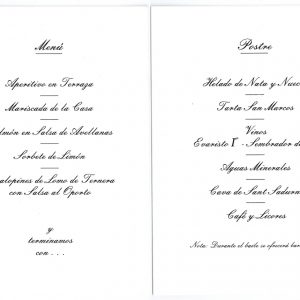 Menú
Aperitivo en Terraza
Mariscada de la Casa
lmón en Salsa de Avellanas
Sorbete de Limón
alopines de Lomo de Ternera
con Salsa al Oporto
y
terminamos
con . . .
Postre
Helado de Nata y Nuec
Tarta San Marcos
Vinos
Evaristo I - Sembrador d
Aguas Minerales
Cava de Sant Sadurn
Café y Licores
Nota: Durante el baile se ofrecerá bar